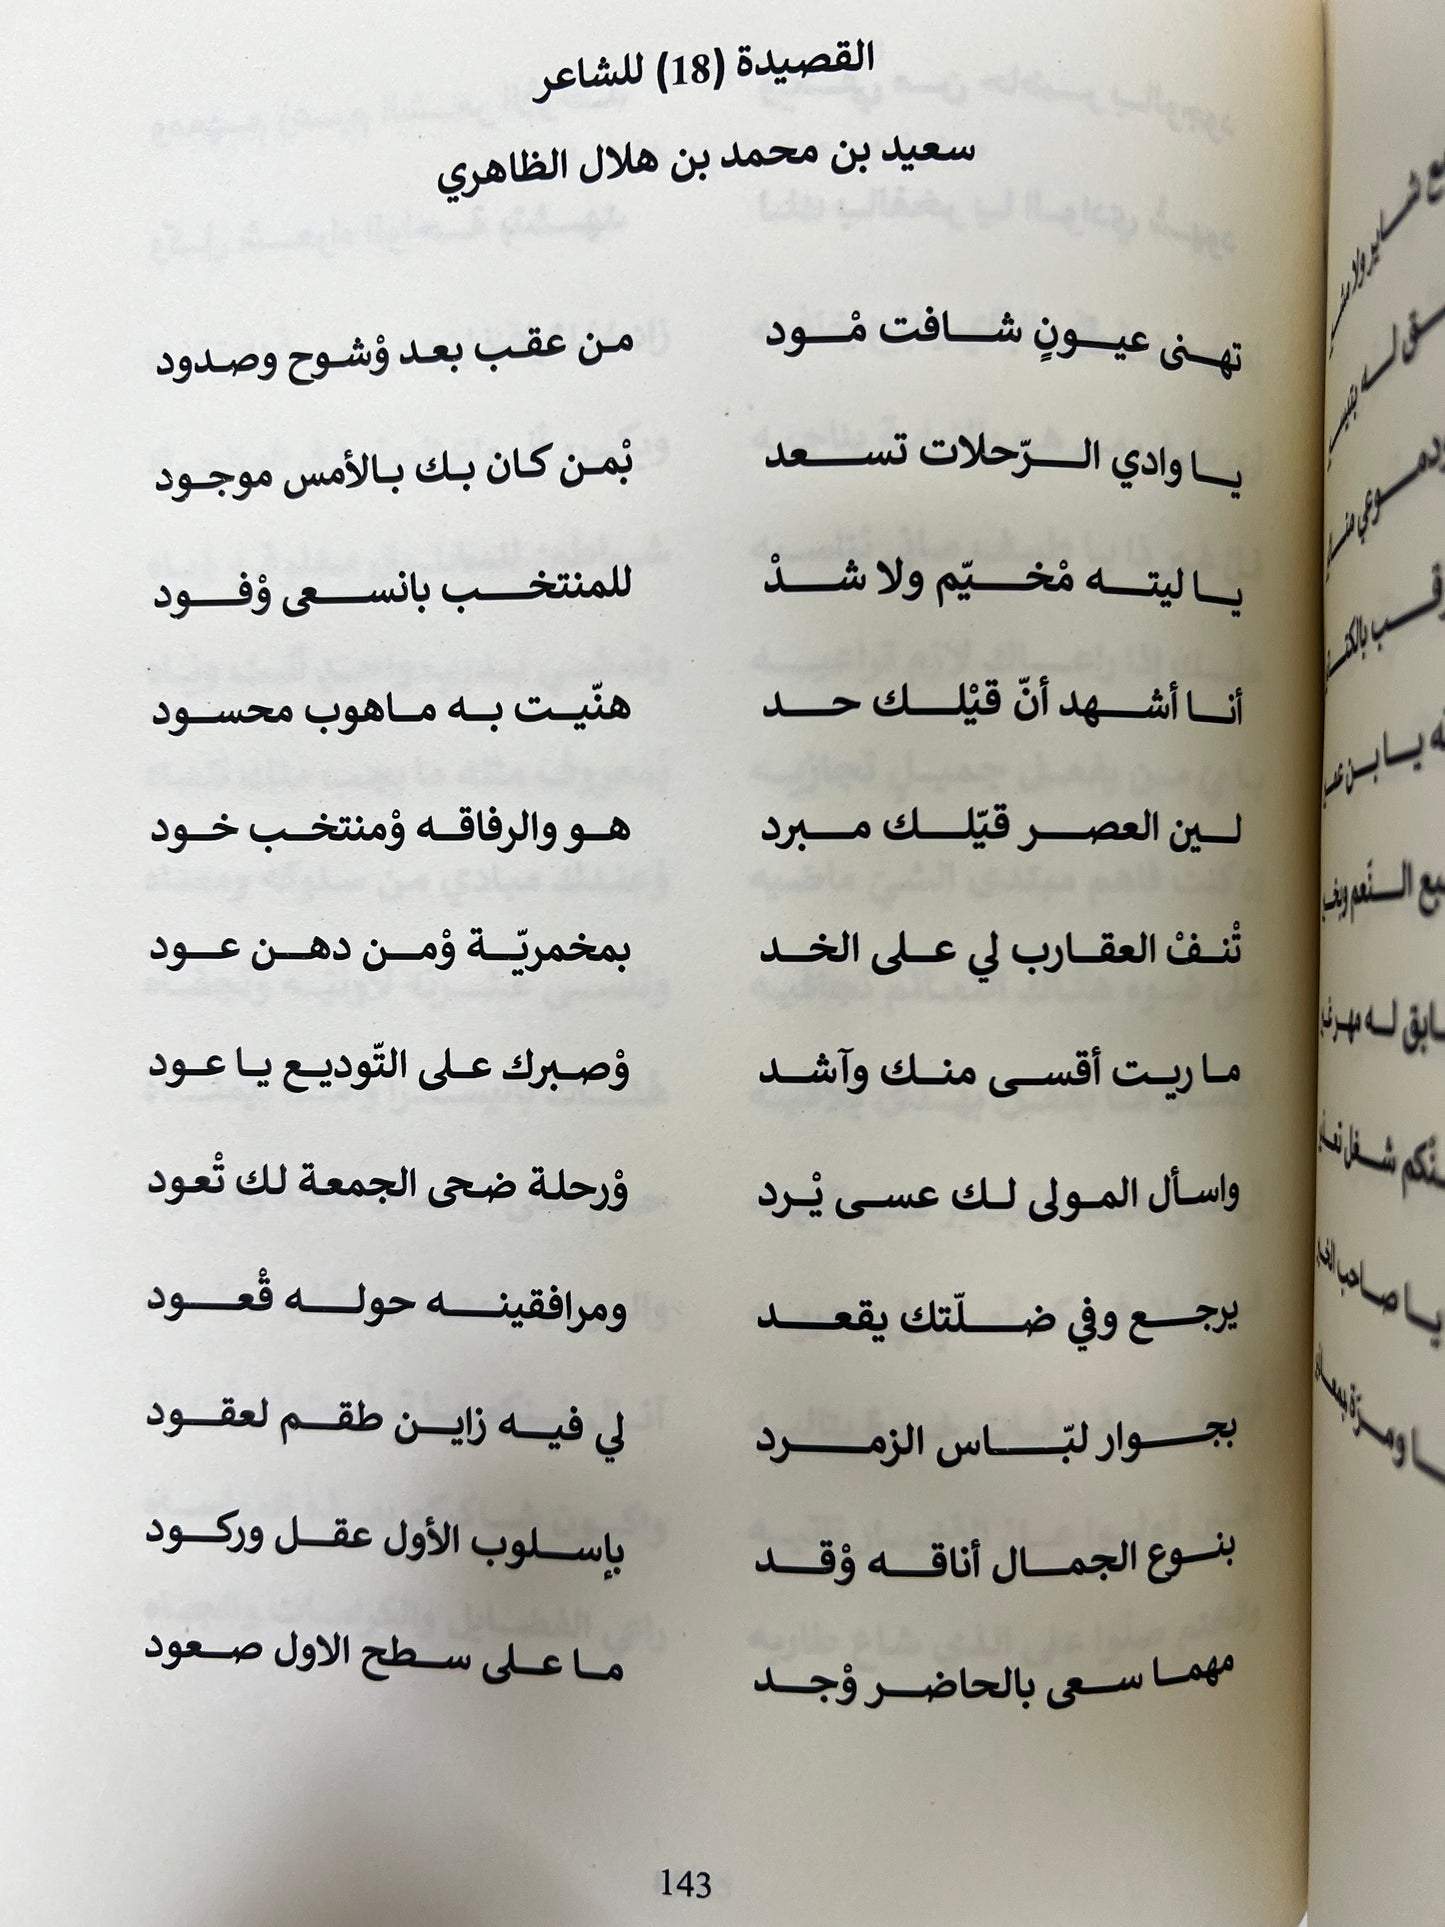 القصيدة (18) للشاعر
سعيد بن محمد بن هلال الظاهري
تهنى عيونٍ شافت مْود من عقب بعد وْشوح وصدود
يا وادي الرّحلات تسعد بْمن كان بك بالأمس موجود
يا ليته مْخيّم ولا شدْ للمنتخب بانسعى وْفود
أنا أشهد أنّ قيْلك حد هنّيت به ماهوب محسود
لين العصر قيّلك مبرد هو والرفاقه وْمنتخب خود
تْنفْ العقارب لي على الخد بمخمريّة وْمن دهن عود
ما ريت أقسى منك وآشد وْصبرك على التّوديع يا عود
واسأل المولى لك عسى يْرد وْرحلة ضحى الجمعة لك تْعود
يرجع وفي ضلّتك يقعد ومرافقينه حوله قْعود
بجوار لبّاس الزمرد لي فيه زاين طقم لعقود
بنوع الجمال أناقه وْقد بإسلوب الأول عقل وركود
مهما سعى بالحاضر وْجد ما على سطح الاول صعود
143